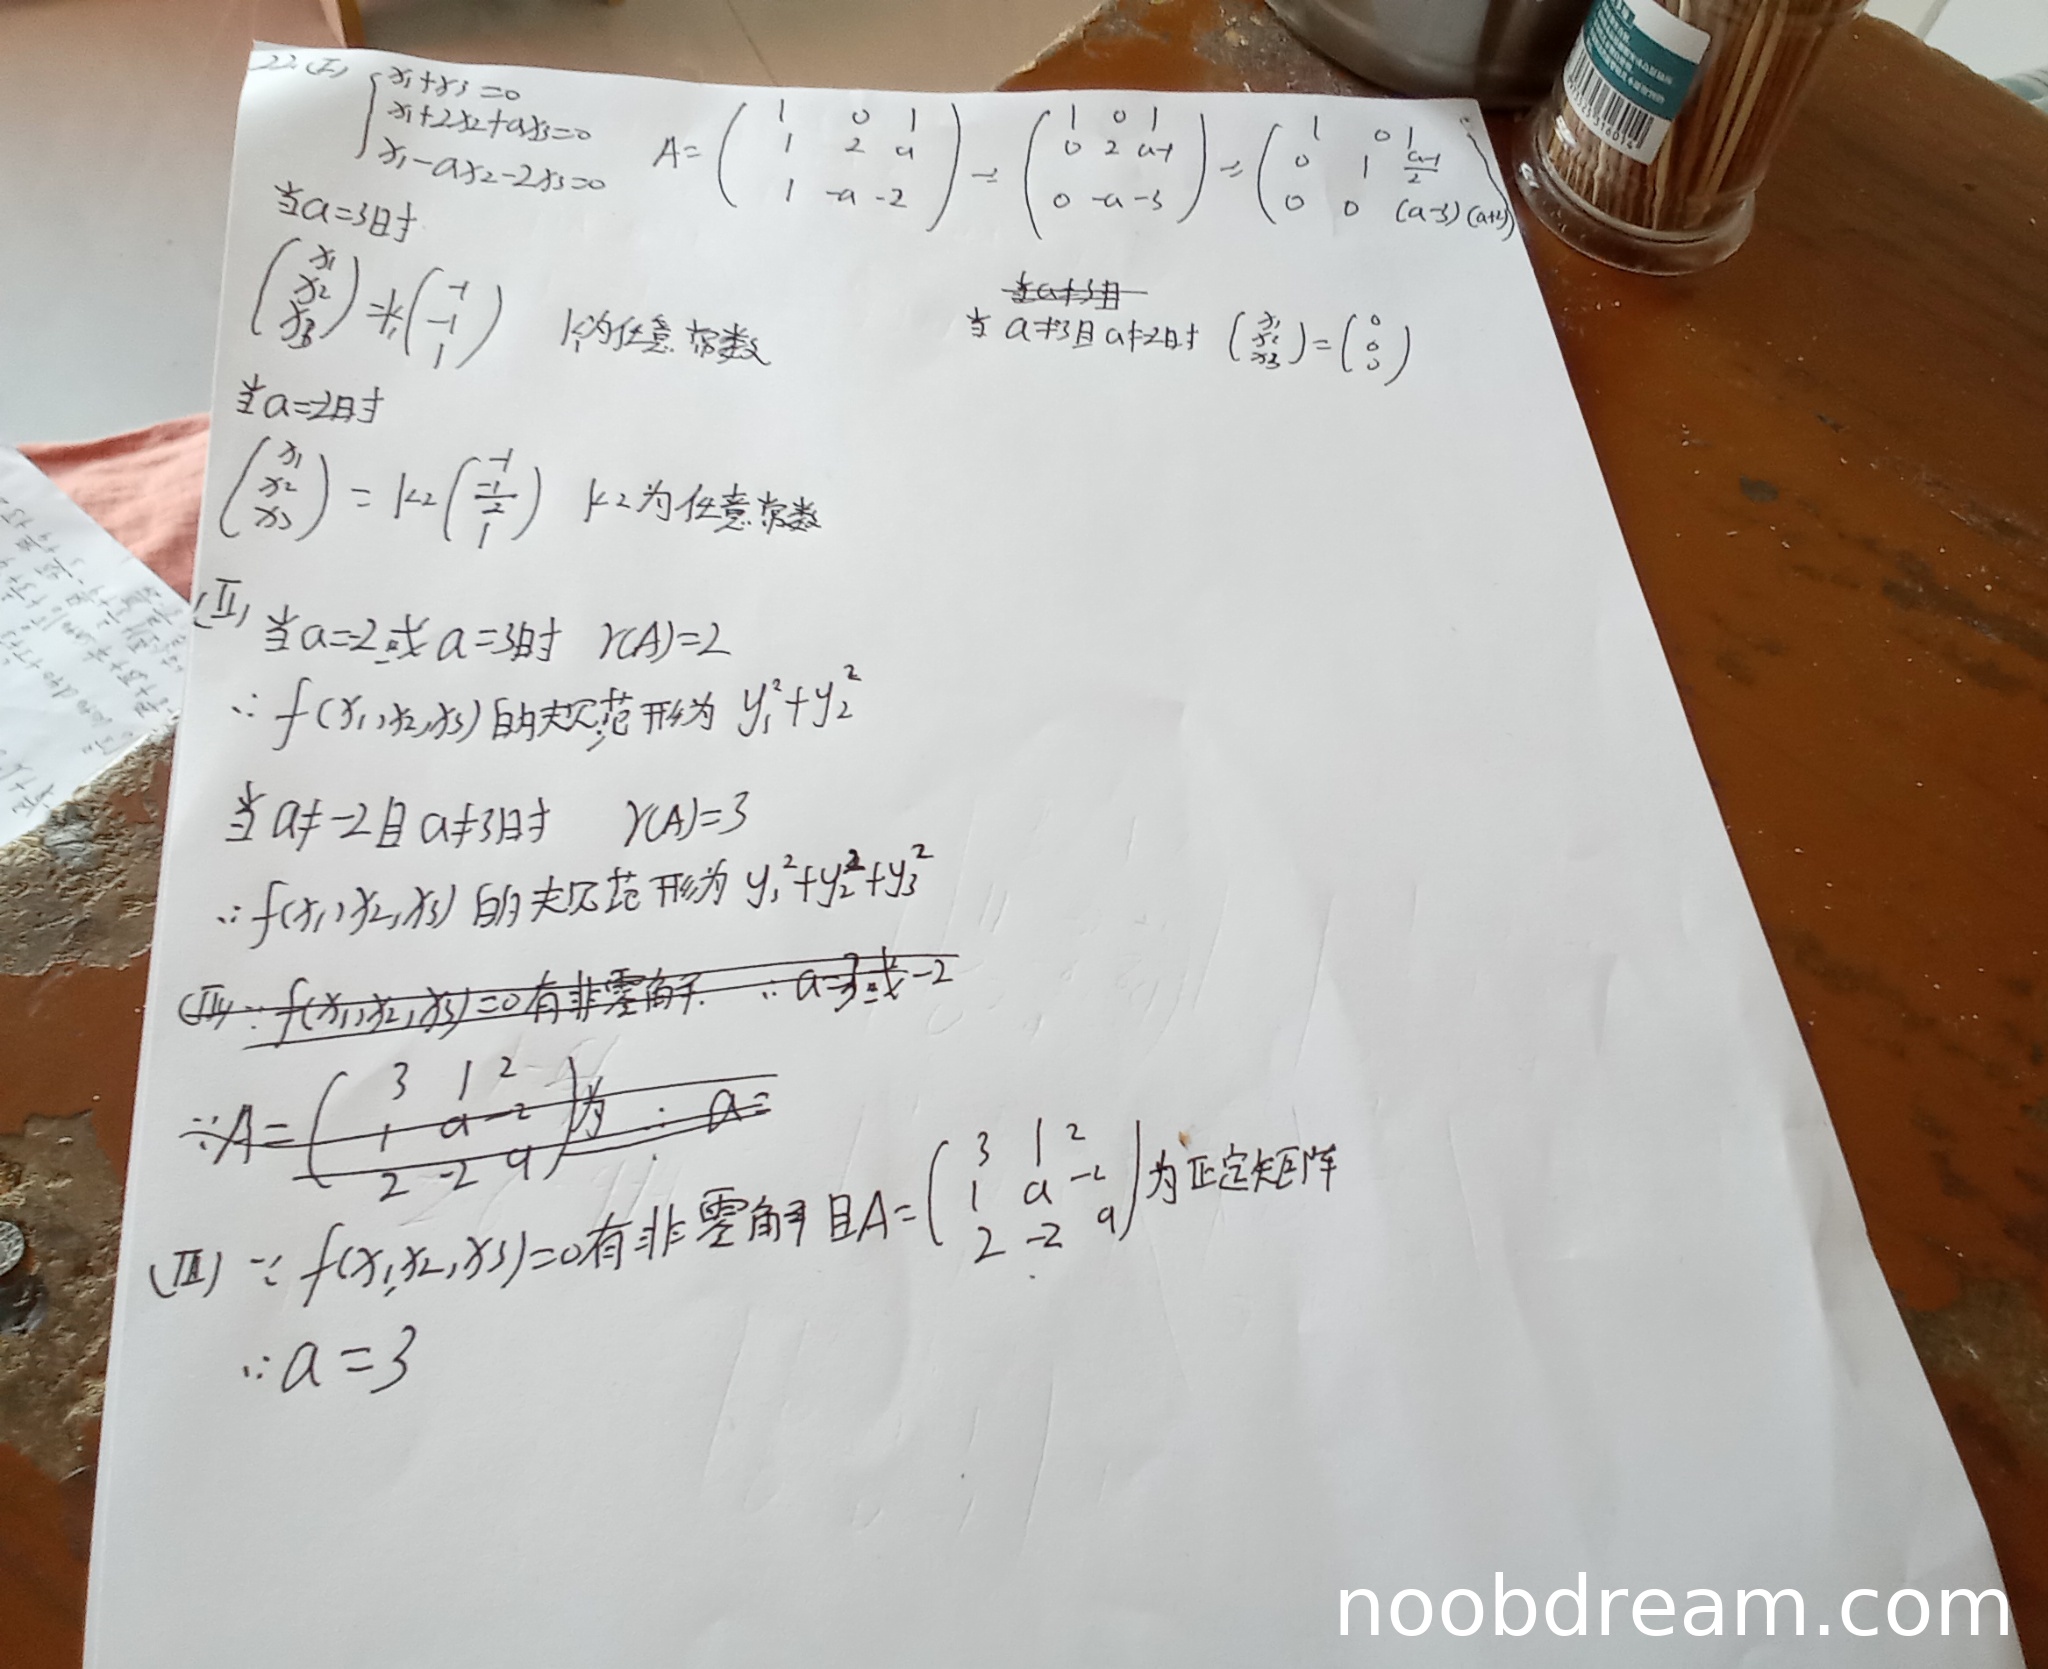 22.(I) { x₁+x₃=0
x₁+2x₂+ax₃=0
x₁-ax₂-2x₃=0
A= ( 1 0 1
1 2 a
1 -a -2 ) → ( 1 0 1
0 2 a-1
0 -a -3 ) → ( 1 0 1
0 1 (a-1)/2
0 0 (a-3)(a+2) )
当a=3时
(x₁ x₂ x₃) = k₁ (-1 -1 1) k₁为任意常数
当a≠3且
当a≠3且a≠-2时 (x₁ x₂ x₃) = (0 0 0)
当a=-2时
(x₁ x₂ x₃) = k₂ (-1 -1/2 1) k₂为任意常数
(II) 当a=-2或a=3时 r(A)=2
∴ f(x₁,x₂,x₃)的规范形为 y₁²+y₂²
当a≠-2且a≠3时 r(A)=3
∴ f(x₁,x₂,x₃)的规范形为 y₁²+y₂²+y₃²
(III) ∵ f(x₁,x₂,x₃)=0有非零解 ∴ a=3或-2
∵A= ( 3 1 2
1 a -2
2 -2 9 ) 为 ∴ a=
(III) ∵ f(x₁,x₂,x₃)=0有非零解且A= ( 3 1 2
1 a -2
2 -2 9 ) 为正定矩阵
∴ a=3
noobdream.com